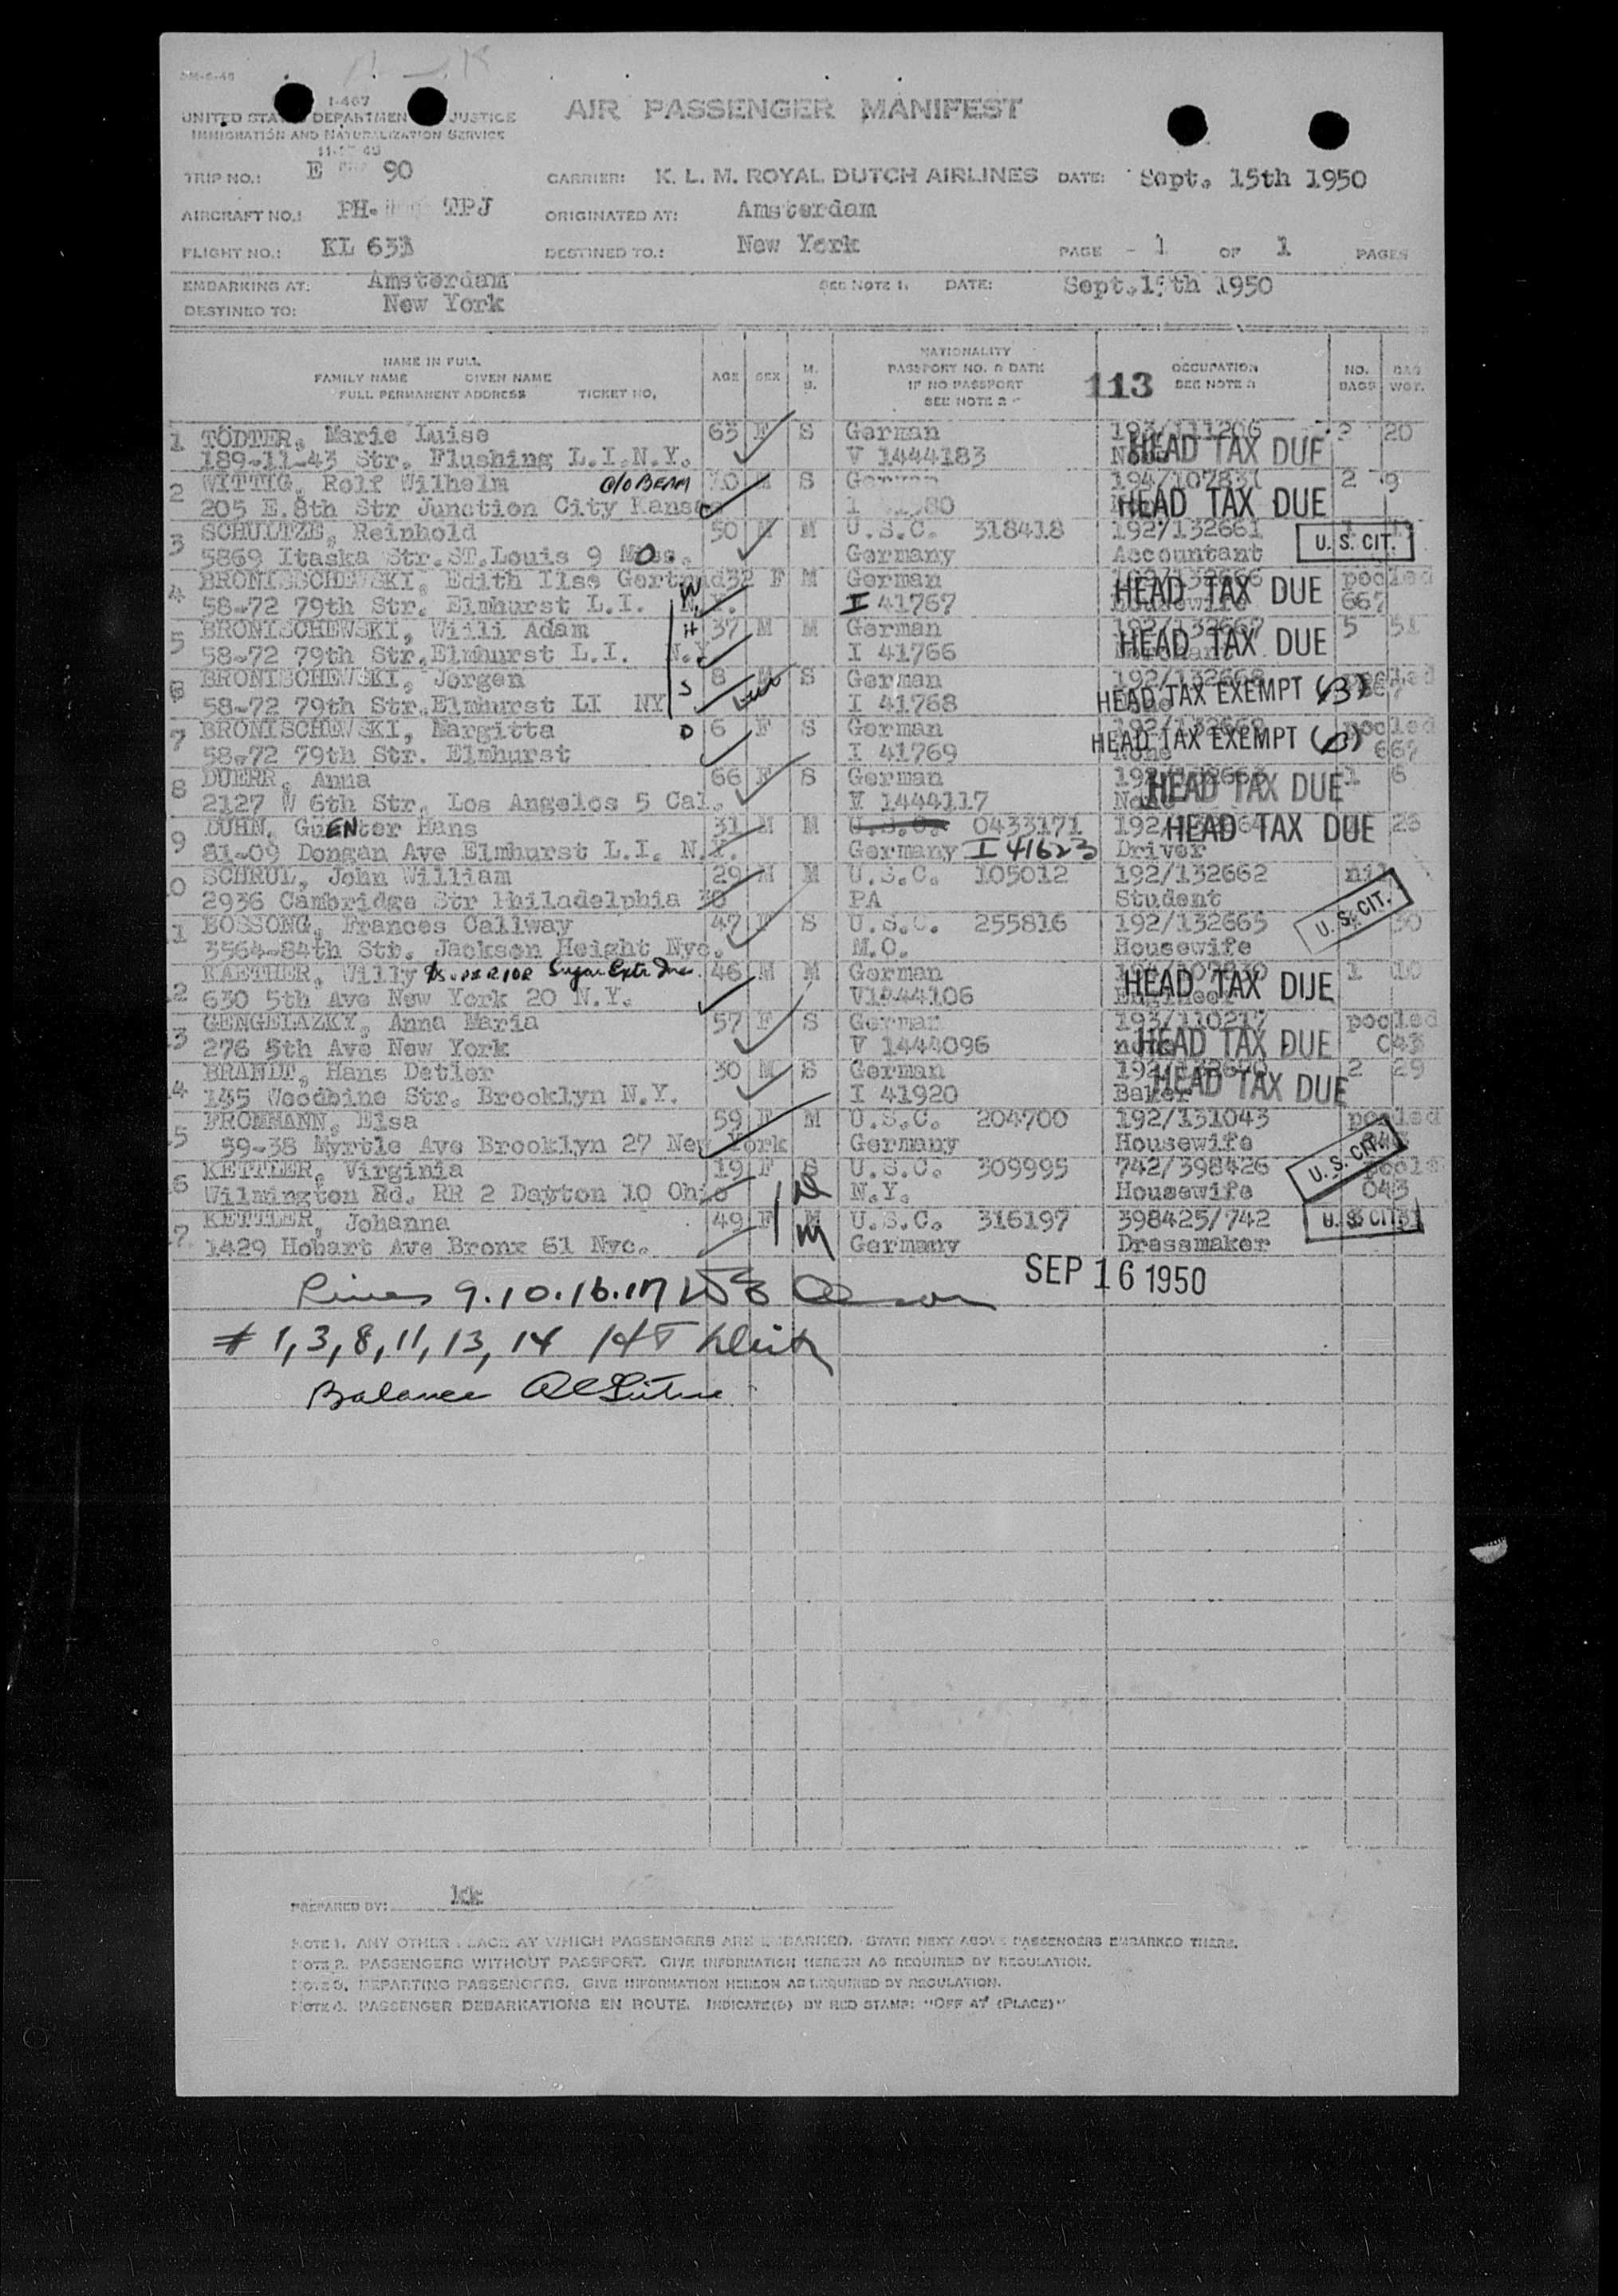 I-467
UNITED STATES DEPARTMENT JUSTICE
IMMIGRATION AND NATURALIZATION SERVICE
AIR PASSENGER MANIFEST
TRIP NO.: E 90 CARRIER: K. L. M. ROYAL DUTCH AIRLINES DATE: Sept. 15th 1950
AIRCRAFT NO.: PH. TPJ ORIGINATED AT: Amsterdam
FLIGHT NO.: KL 633 DESTINED TO.: New York PAGE - 1 OF 1 PAGES
EMBARKING AT: Amsterdam SEE NOTE 1. DATE: Sept. 15th 1950
DESTINED TO: New York
NAME IN FULL
FAMILY NAME GIVEN NAME
FULL PERMANENT ADDRESS TICKET NO.
AGE SEX M. S.
NATIONALITY
PASSPORT NO. & DATE
IF NO PASSPORT
SEE NOTE 2
113 OCCUPATION
SEE NOTE 3
NO. BAGS BAG WGT.
1 TÖDTER, Marie Luise 63 F S German 193/111206 2 20
189-11-43 Str. Flushing L.I.N.Y. V 1444183 None HEAD TAX DUE
2 WITTIG, Rolf Wilhelm c/o BEAM M S German 2 9
205 E.8th Str Junction City Kansas HEAD TAX DUE
3 SCHULTZE, Reinhold 50 M M U.S.C. 318418 192/132661
5869 Itaska Str.ST.Louis 9 Mo. Germany Accountant U. S. CIT.
4 BRONISSCHEWSKI, Edith Ilse Gertrud 32 F M German pooled
58-72 79th Str. Elmhurst L.I. N.Y. W I 41767 Housewife HEAD TAX DUE 667
5 BRONISCHEWSKI, Willi Adam H 37 M M German 192/132667 5 51
58-72 79th Str.Elmhurst L.I. N.Y. I 41766 HEAD TAX DUE
6 BRONISCHEWSKI, Jorgen S 8 M S German 192/132668 pooled
58-72 79th Str.Elmhurst LI NY I 41768 HEAD TAX EXEMPT (B) 667
7 BRONISCHEWSKI, Margitta D 6 F S German 192/132669 pooled
58-72 79th Str. Elmhurst I 41769 None HEAD TAX EXEMPT (B) 667
8 DUERR, Anna 66 F S German 1 6
2127 W 6th Str. Los Angelos 5 Cal. V 1444117 None HEAD TAX DUE
9 DUHN, GuENter Hans 31 M M U.S.C. 0433171 HEAD TAX DUE 23
81-09 Dongan Ave Elmhurst L.I. N.Y. Germany I 41623 Driver
0 SCHRUL, John William 29 M M U.S.C. 105012 192/132662 nil
2936 Cambridge Str Philadelphia 30 PA Student U. S. CIT.
1 BOSSONG, Frances Callway 47 F S U.S.C. 255816 192/132665 30
3564-84th Str. Jackson Height Nyc. M.O. Housewife
2 KAETHER, Willy Sugar Extr Inc. 46 M M German 1 10
630 5th Ave New York 20 N.Y. V1444106 Engineer HEAD TAX DUE
3 GENGELAZKY, Anna Maria 57 F S German 193/110217 pooled
276 5th Ave New York V 1444096 none HEAD TAX DUE 043
4 BRANDT, Hans Detler 30 M S German 192/132670 2 29
145 Woodbine Str. Brooklyn N.Y. I 41920 Baker HEAD TAX DUE
5 FROMMANN, Elsa 59 F M U.S.C. 204700 192/131043 pooled
59-38 Myrtle Ave Brooklyn 27 New York Germany Housewife 043
6 KETTLER, Virginia 19 F S U.S.C. 309995 742/398426 U. S. CIT.
Wilmington Rd. RR 2 Dayton 10 Ohio D N.Y. Housewife 043
7 KETTLER, Johanna 49 F M U.S.C. 316197 398425/742 U. S. CIT.
1429 Hobart Ave Bronx 61 Nyc. M Germany Dressmaker
SEP 16 1950
Lines 9.10.16.17
# 1,3,8,11,13,14
Balance
PREPARED BY:
NOTE 1. ANY OTHER PLACE AT WHICH PASSENGERS ARE EMBARKED. STATE NEXT ABOVE PASSENGERS EMBARKED THERE.
NOTE 2. PASSENGERS WITHOUT PASSPORT. GIVE INFORMATION HEREON AS REQUIRED BY REGULATION.
NOTE 3. DEPARTING PASSENGERS. GIVE INFORMATION HEREON AS REQUIRED BY REGULATION.
NOTE 4. PASSENGER DEBARKATIONS EN ROUTE. INDICATE(D) BY RED STAMP: "OFF AT (PLACE)"